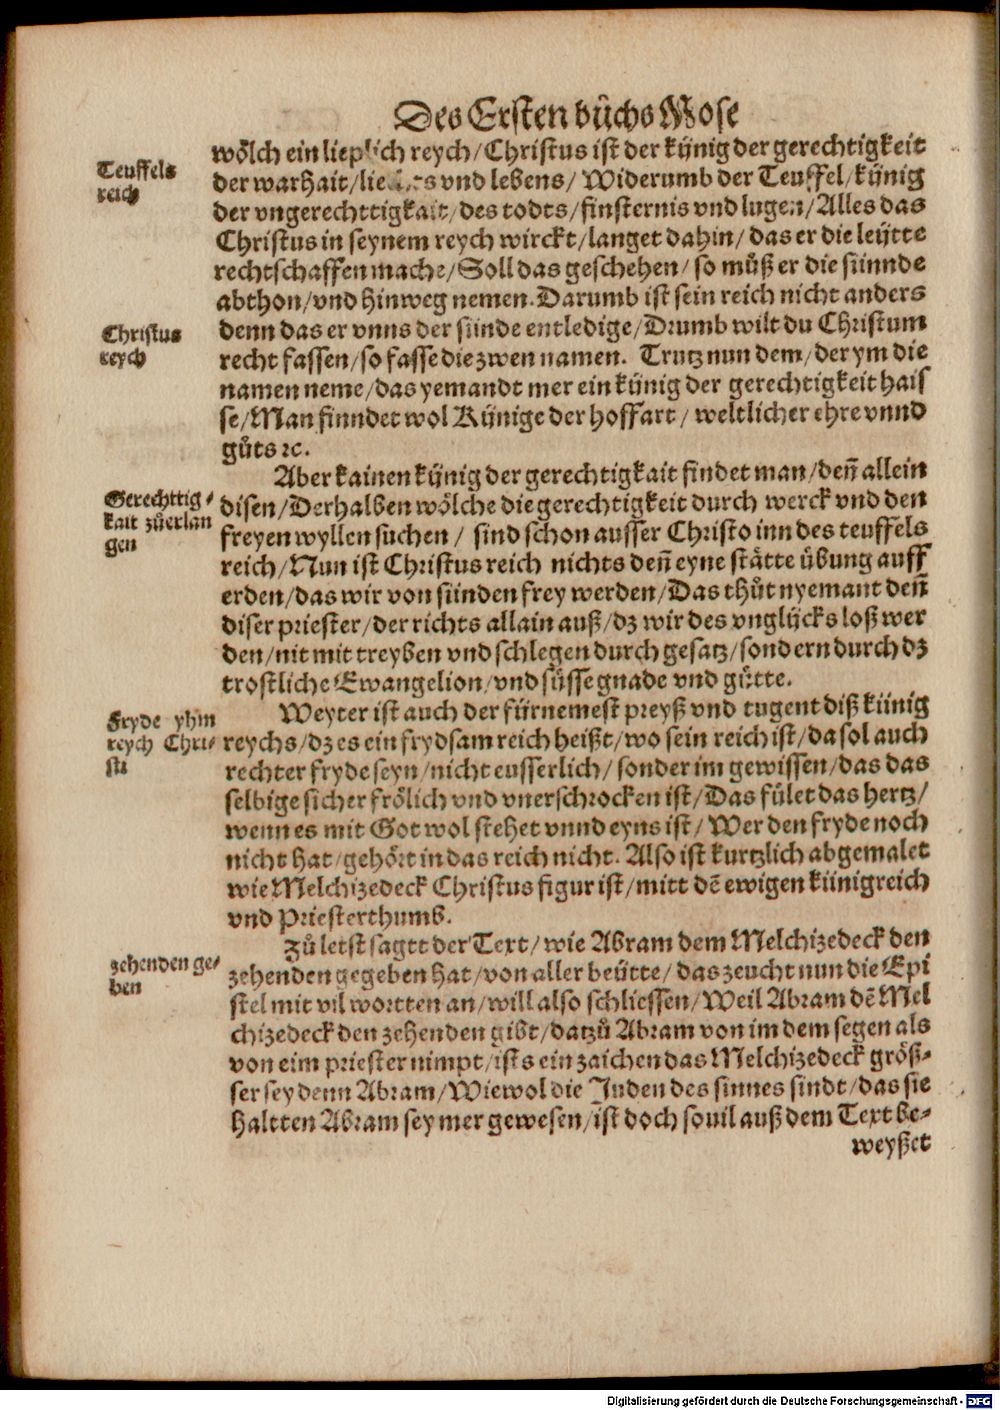 Des Ersten bůchs Mose
Teuffels
reich
wölch ein lieplich reych/Christus ist der künig der gerechtigkeit
der warhait/ vnd lebens/ Widerumb der Teuffel/künig
der vngerechttigkait/des todts/finsternis vnd lugen/Alles das
Christus in seynem reych wirckt/langet dahin/das er die leütte
rechtschaffen mache/Soll das geschehen/so můß er die sünnde
abthon/vnd hinweg nemen. Darumb ist sein reich nicht anders
Christus
reych
denn das er vnns der sünde entledige/Drumb wilt du Christum
recht fassen/so fasse die zwen namen. Trutz nun dem/der ym die
namen neme/das yemandt mer ein künig der gerechtigkeit hais
se/Man finndet wol Künige der hoffart/ weltlicher ehre vnnd
gůts ꝛc.
Aber kainen künig der gerechtigkait findet man/deñ allein
Gerechttig-
kait zůerlan
gen
disen/Derhalben wölche die gerechtigkeit durch werck vnd den
freyen wyllen suchen/ sind schon ausser Christo inn des teuffels
reich/Nun ist Christus reich nichts deñ eyne stätte übung auff
erden/das wir von sünden frey werden/Das thůt nyemant deñ
diser priester/der richts allain auß/dz wir des vnglücks loß wer
den/nit mit treyben vnd schlegen durch gesatz/sondern durch dz
trostliche Ewangelion/vnd süsse gnade vnd gůtte.
Fryde yhm
reych Chri-
sti
Weyter ist auch der fürnemest preyß vnd tugent diß künig
reychs/dz es ein frydsam reich heißt/wo sein reich ist/da sol auch
rechter fryde seyn/nicht eusserlich/sonder im gewissen/das das
selbige sicher frölich vnd vnerschrocken ist/Das fület das hertz/
wenn es mit Got wol stehet vnnd eyns ist/Wer den fryde noch
nicht hat/gehört in das reich nicht. Also ist kurtzlich abgemalet
wie Melchizedeck Christus figur ist/mitt dẽ ewigen künigreich
vnd Priesterthumb.
Zů letst sagtt der Text/wie Abram dem Melchizedeck den
zehenden ge-
ben
zehenden gegeben hat/von aller beütte/das zeucht nun die Epi
stel mit vil wortten an/will also schliessen/Weil Abram dẽ Mel
chizedeck den zehenden gibt/datzů Abram von im dem segen als
von eim priester nimpt/ists ein zaichen das Melchizedeck grös-
ser sey denn Abram/Wiewol die Juden des sinnes sindt/das sie
haltten Abram sey mer gewesen/ist doch souil auß dem Text be-
weyßet
Digitalisierung gefördert durch die Deutsche Forschungsgemeinschaft - DFG